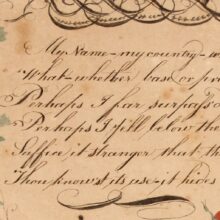 My Name - my country - w
What - whether base or pr
Perhaps I far surpass'd
Perhaps I fell below the
Suffice it stranger that th
Thou know'st its use - it hides